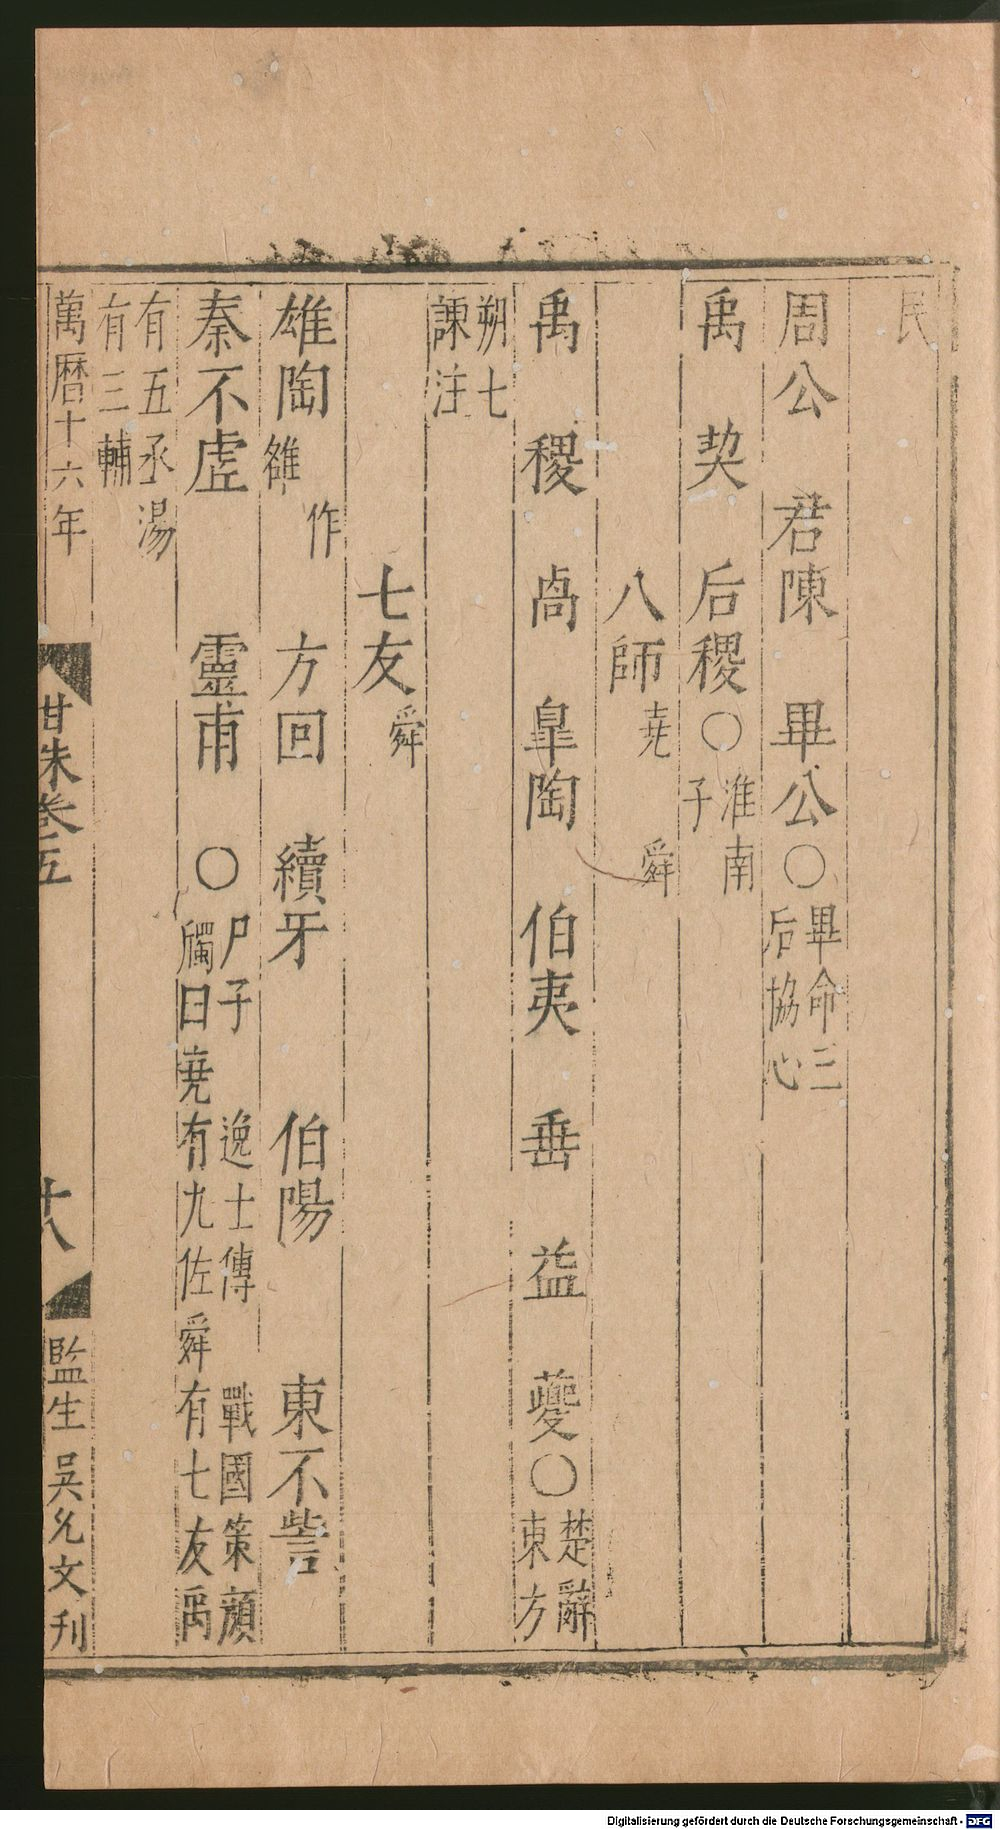 民
周公 君陳 畢公〇畢命三后協心
禹 契 后稷〇淮南子
八師堯 舜
禹 稷 卨 皐陶 伯夷 垂 益 夔〇楚辭東方
朔七諫注
七友舜
雄陶作雒 方回 續牙 伯陽 東不訾
秦不虗 靈甫 〇尸子 逸士傳 戰國策顔斶曰堯有九佐舜有七友禹
有五丞湯有三輔
萬曆十六年 甘朱卷五 十八 監生吳允文刋
Digitalisierung gefördert durch die Deutsche Forschungsgemeinschaft - DFG